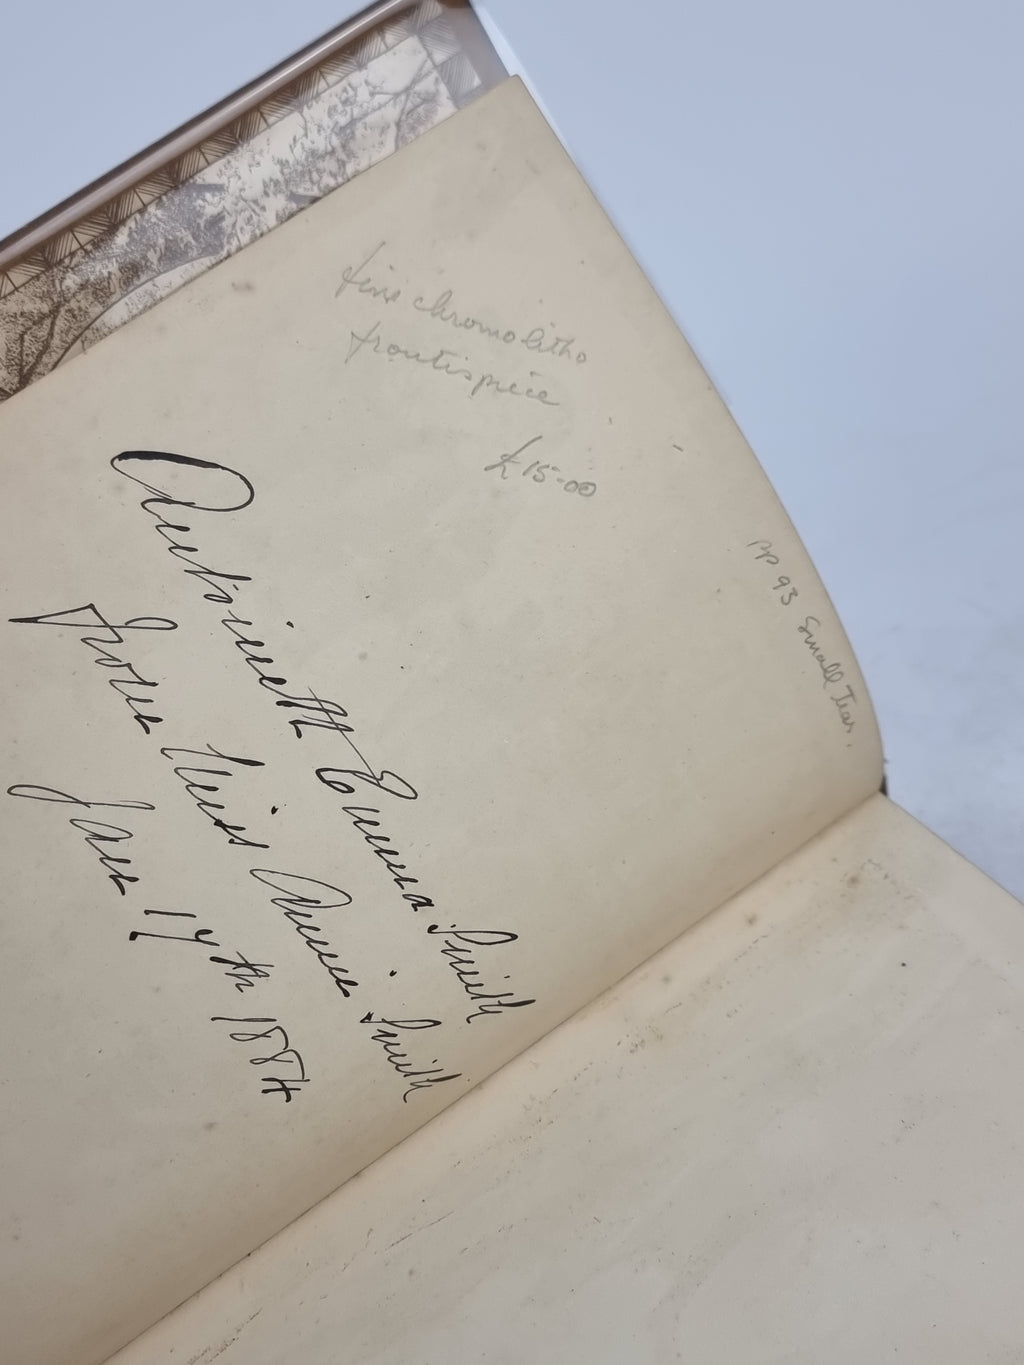 fine chromolitho
frontispiece
£15-00
pp 93 Small Tear.
Antoinette Emma Smith
From Miss Annie Smith
Jan 17th 1884